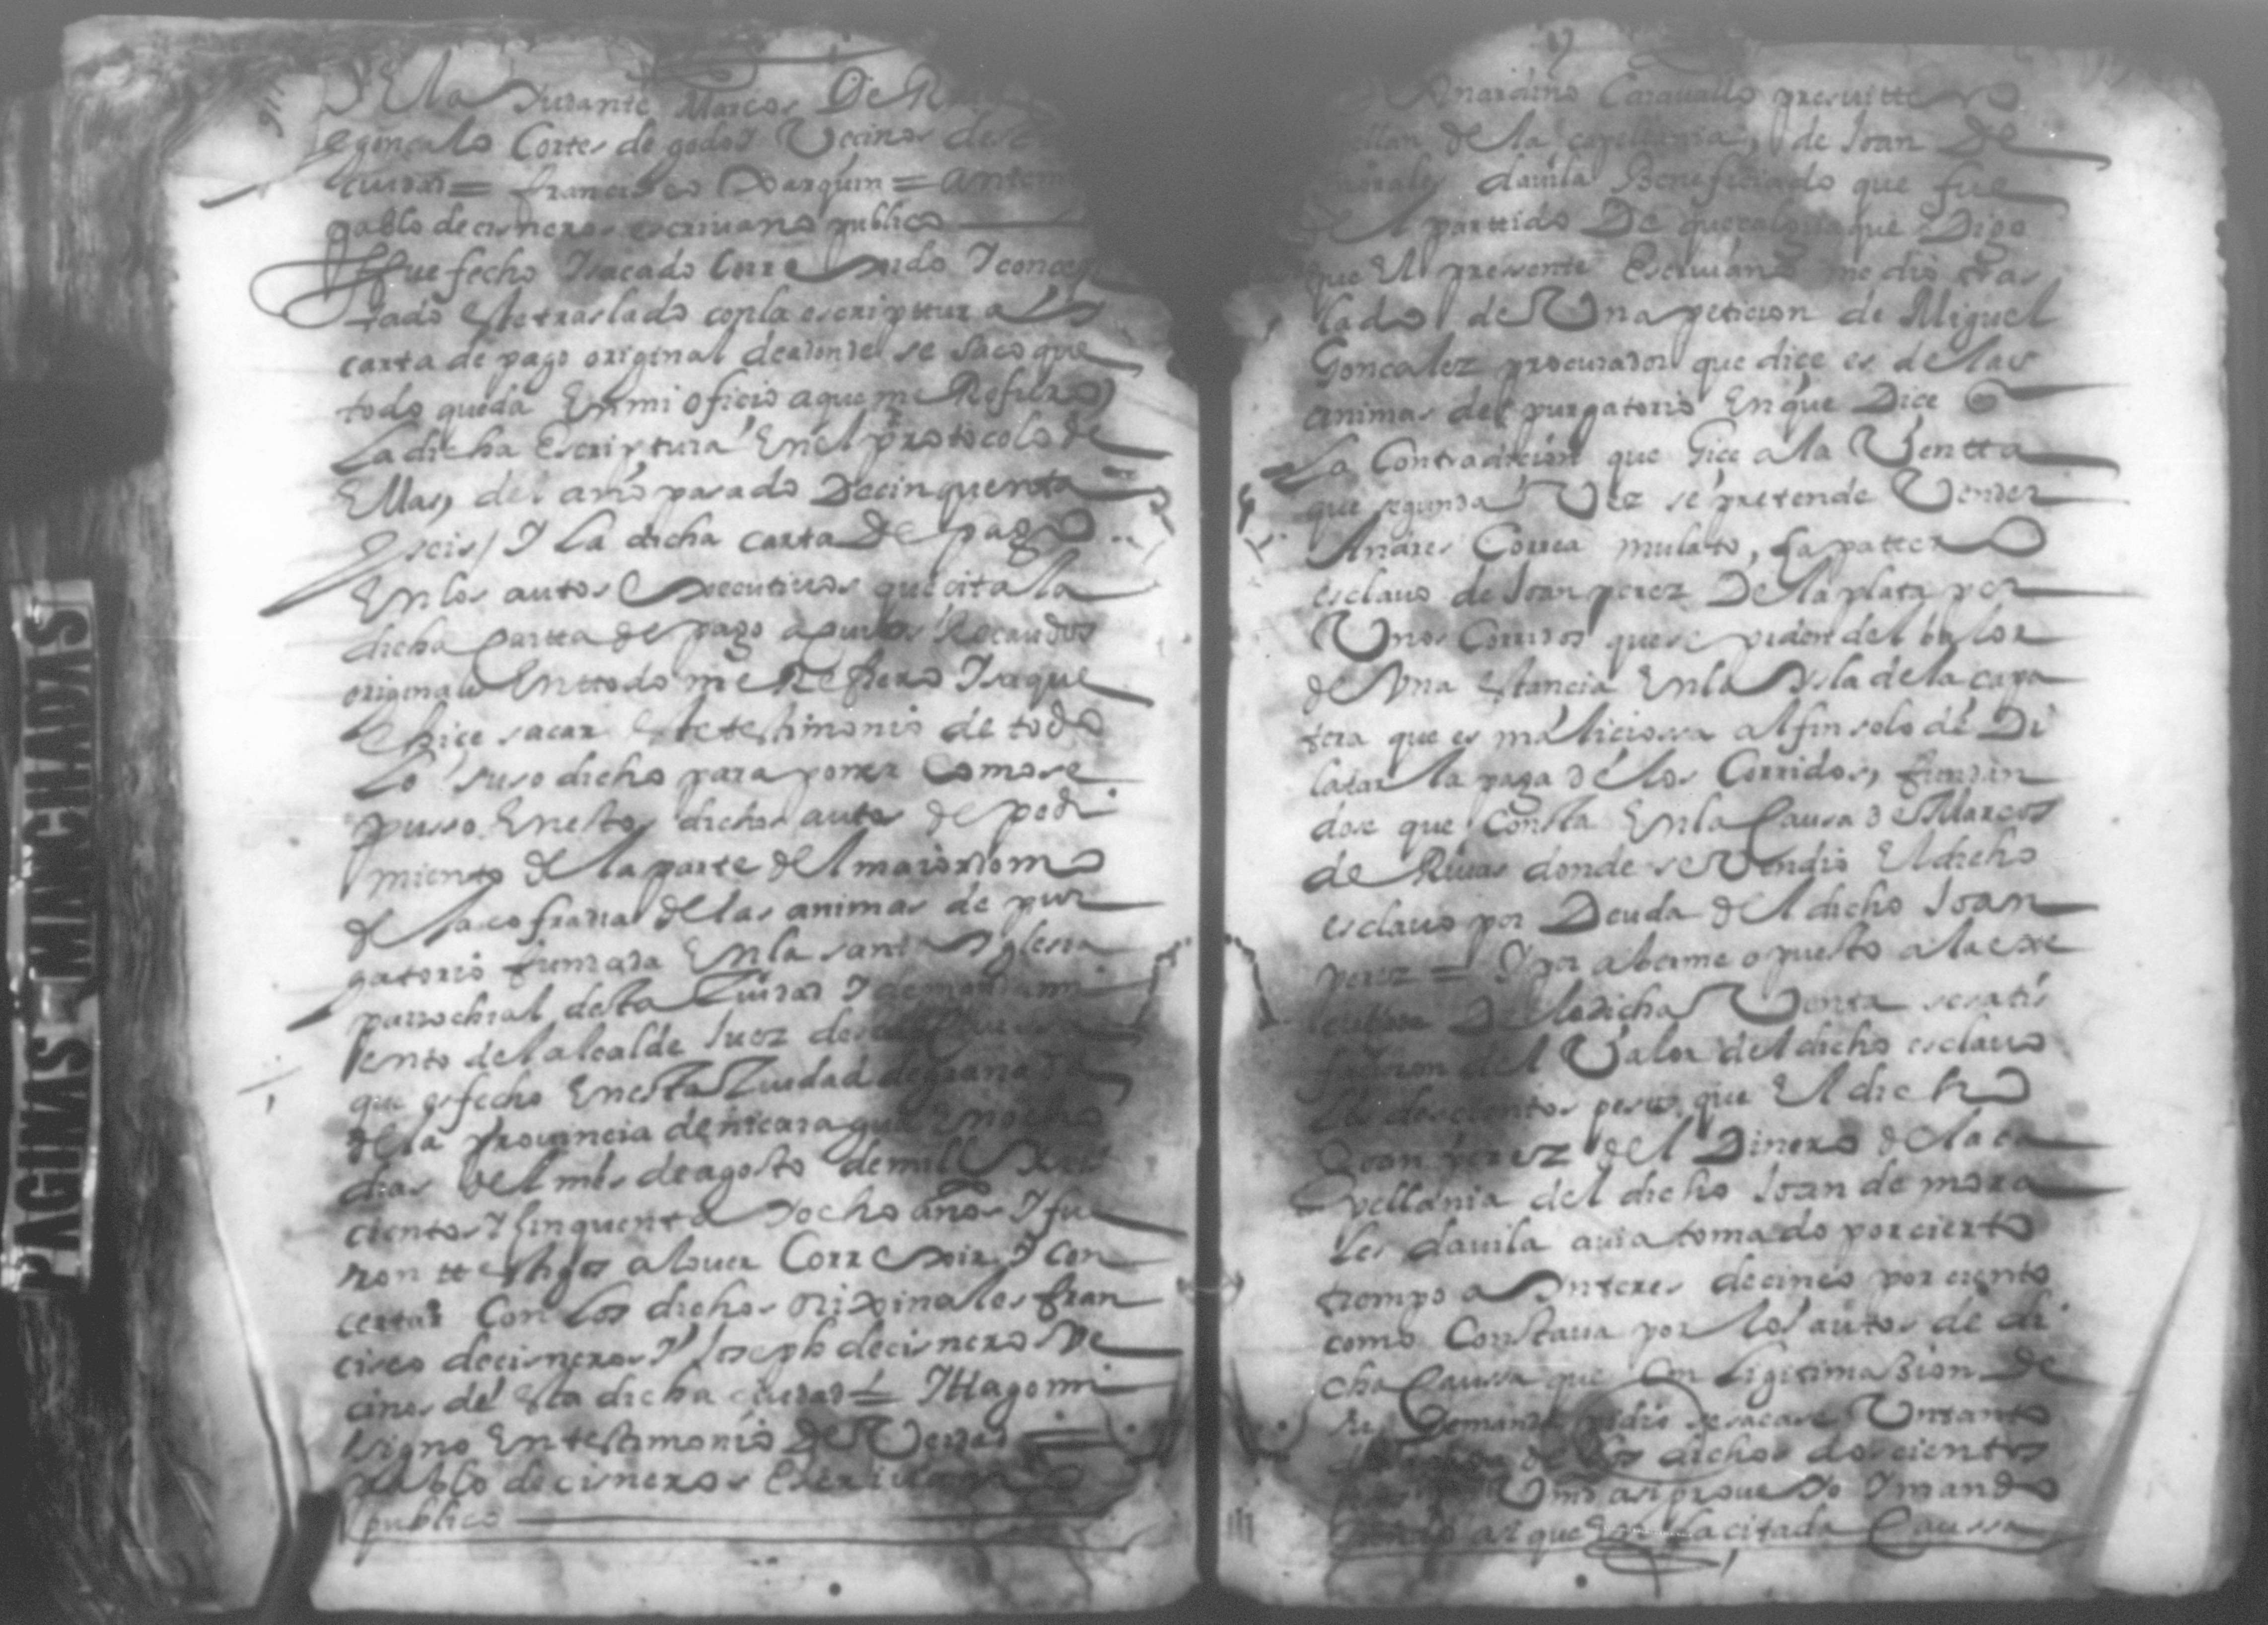 Marcos De
e gonçalo Cortes de godoy Vecinos desta
ciudad = francisco Joarquin = Antemi
pablo de cisneros escrivano publico
fue fecho Ysacado Corre Yconcer
tado este traslado con la escripttura
carta de pago original de adonde se saco que
todo queda En mi oficio a que me Refiero
La dicha Escriptura En el protocolo de
Ellas, del año pasado De cinquenta
Yseis / Y la dicha carta De pago
En los autos Executivos que cita la
dicha Cartta de pago a cuios Recaudos
originales En ttodo me Refiero Ysaque
e hice sacar este testimonio de todo
Lo suso dicho para poner como se
pusso En estos dichos autos de pedi
miento de la parte del maiordomo
de la cofradia de las animas de pur
gatorio fundada En la santa Yglesia
parrochial desta Ziudad Y de mandami
ento del alcalde Juez
que es fecho En esta Ziudad de granada
de la provincia de nicaragua En ocho
dias del mes de agosto de mill
cientos Y Cinquenta Yocho años Y fue
ron ttestigos a lo ver Corre Y con
certar Con Los dichos originales fran
cisco de cisneros Y Joseph de cisneros Ve
cinos de Esta dicha ciudad = YHago mi
signo En testimonio De Verdad =
Pablo de cisneros Escrivano
publico
PAGINAS MANCHADAS
Caravallo presvittero
de la capellania, de Joan De
morales davila Beneficiado que fue
del parttido De que Digo
que El presente Escrivano me dio tras
lado de Una peticion de Miguel
Goncalez procurador que dice es de las
animas del purgatorio En que Dice
La Contradicion que hice a la Ventta
que segunda Vez se pretende Vender
Andres Correa mulato, sapattero
esclavo de Joan perez De la plata por
Unos Corridos que se piden del balor
de Una estancia En la Ysla de la capa
tera que es maliciossa al fin solo de Di
latar la paga de los Corridos, fundan
dose que Consta En la Causa de Marcos
de Rivas donde se Vendio El dicho
esclavo por Deuda del dicho Joan
perez = Y por aberme opuesto a la exe
De la dicha Venta se satis
ficieron del Valor del dicho esclavo
Los doscientos pesos que El dicho
Joan perez del Dinero de la ca
pellania del dicho Joan de mora
les davila avia tomado por cierto
tiempo a Ynteres de cinco por ciento
como Constava por los autos de di
cha Caussa que En Ligitimasion De
su Demanda pidio se sacase Un tanto
de los dichos doscientos
Vmd asi proveYo Y mando
asi que En La citada Caussa